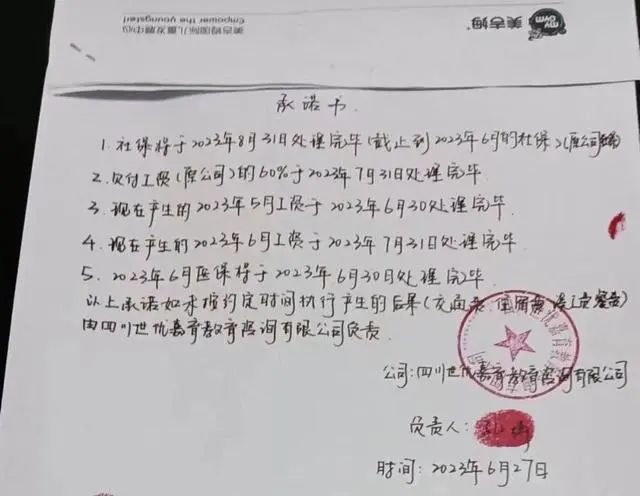 美吉姆
my gym
美吉姆国际儿童发展中心
Empower the youngster!
承诺书
1. 社保将于2023年8月31日处理完毕(截止到2023年6月的社保)(原公司
2. 欠付工资(原公司)的60%于2023年7月31日处理完毕.
3. 现在产生的2023年5月工资于2023年6月30处理完毕.
4. 现在产生的2023年6月工资于2023年7月31日处理完毕.
5. 2023年6月医保将于2023年6月30日处理完毕.
以上承诺如未按约定时间执行产生的后果(
由四川世优嘉育教育咨询有限公司负责.
公司:四川世优嘉育教育咨询有限公司
负责人:
时间: 2023年6月27日